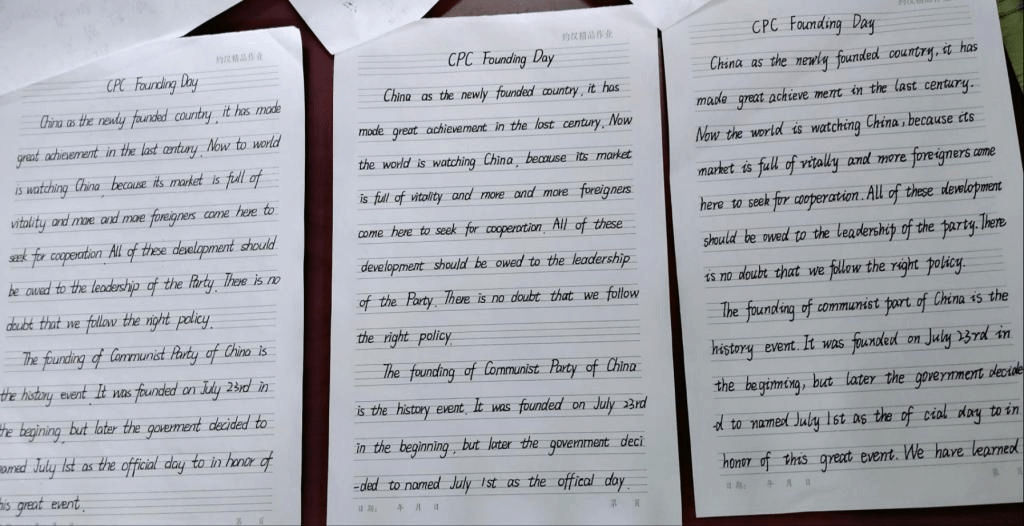 约汉精品作业
CPC Founding Day
China as the newly founded country, it has made
great achievement in the last century. Now to world
is watching China, because its market is full of
vitality and more and more foreigners come here to
seek for cooperation. All of these development should
be owed to the leadership of the Party. There is no
doubt that we follow the right policy.
The founding of Communist Party of China is
the history event. It was founded on July 23rd in
the begining, but later the goverment decided to
named July 1st as the official day to in honor of
his great event.
第 页
约汉精品作业
CPC Founding Day
China as the newly founded country, it has
made great achievement in the last century. Now
the world is watching China, because its market
is full of vitality and more and more foreigners
come here to seek for cooperation. All of these
development should be owed to the leadership
of the Party. There is no doubt that we follow
the right policy.
The founding of Communist Party of China
is the history event. It was founded on July 23rd
in the beginning, but later the government deci
-ded to named July 1st as the offical day.
日期: 年 月 日 第 页
约汉精品作业
CPC Founding Day
China as the newly founded country, it has
made great achieve ment in the last century.
Now the world is watching China, because its
market is full of vitally and more foreigners come
here to seek for cooperation. All of these development
should be owed to the leadership of the party. There
is no doubt that we follow the right policy.
The founding of communist part of China is the
history event. It was founded on July 23rd in
the beginning, but later the government decide
-d to named July 1st as the of cial day to in
honor of this great event. We have learned
日期: 年 月 日 第 页